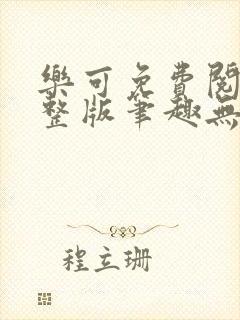 樂可免費閱
整版筆趣無
程立珊